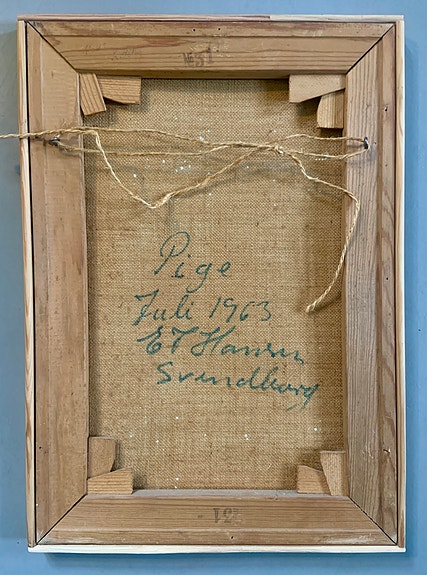 Pige
Juli 1963
ET Hansen
Svendborg